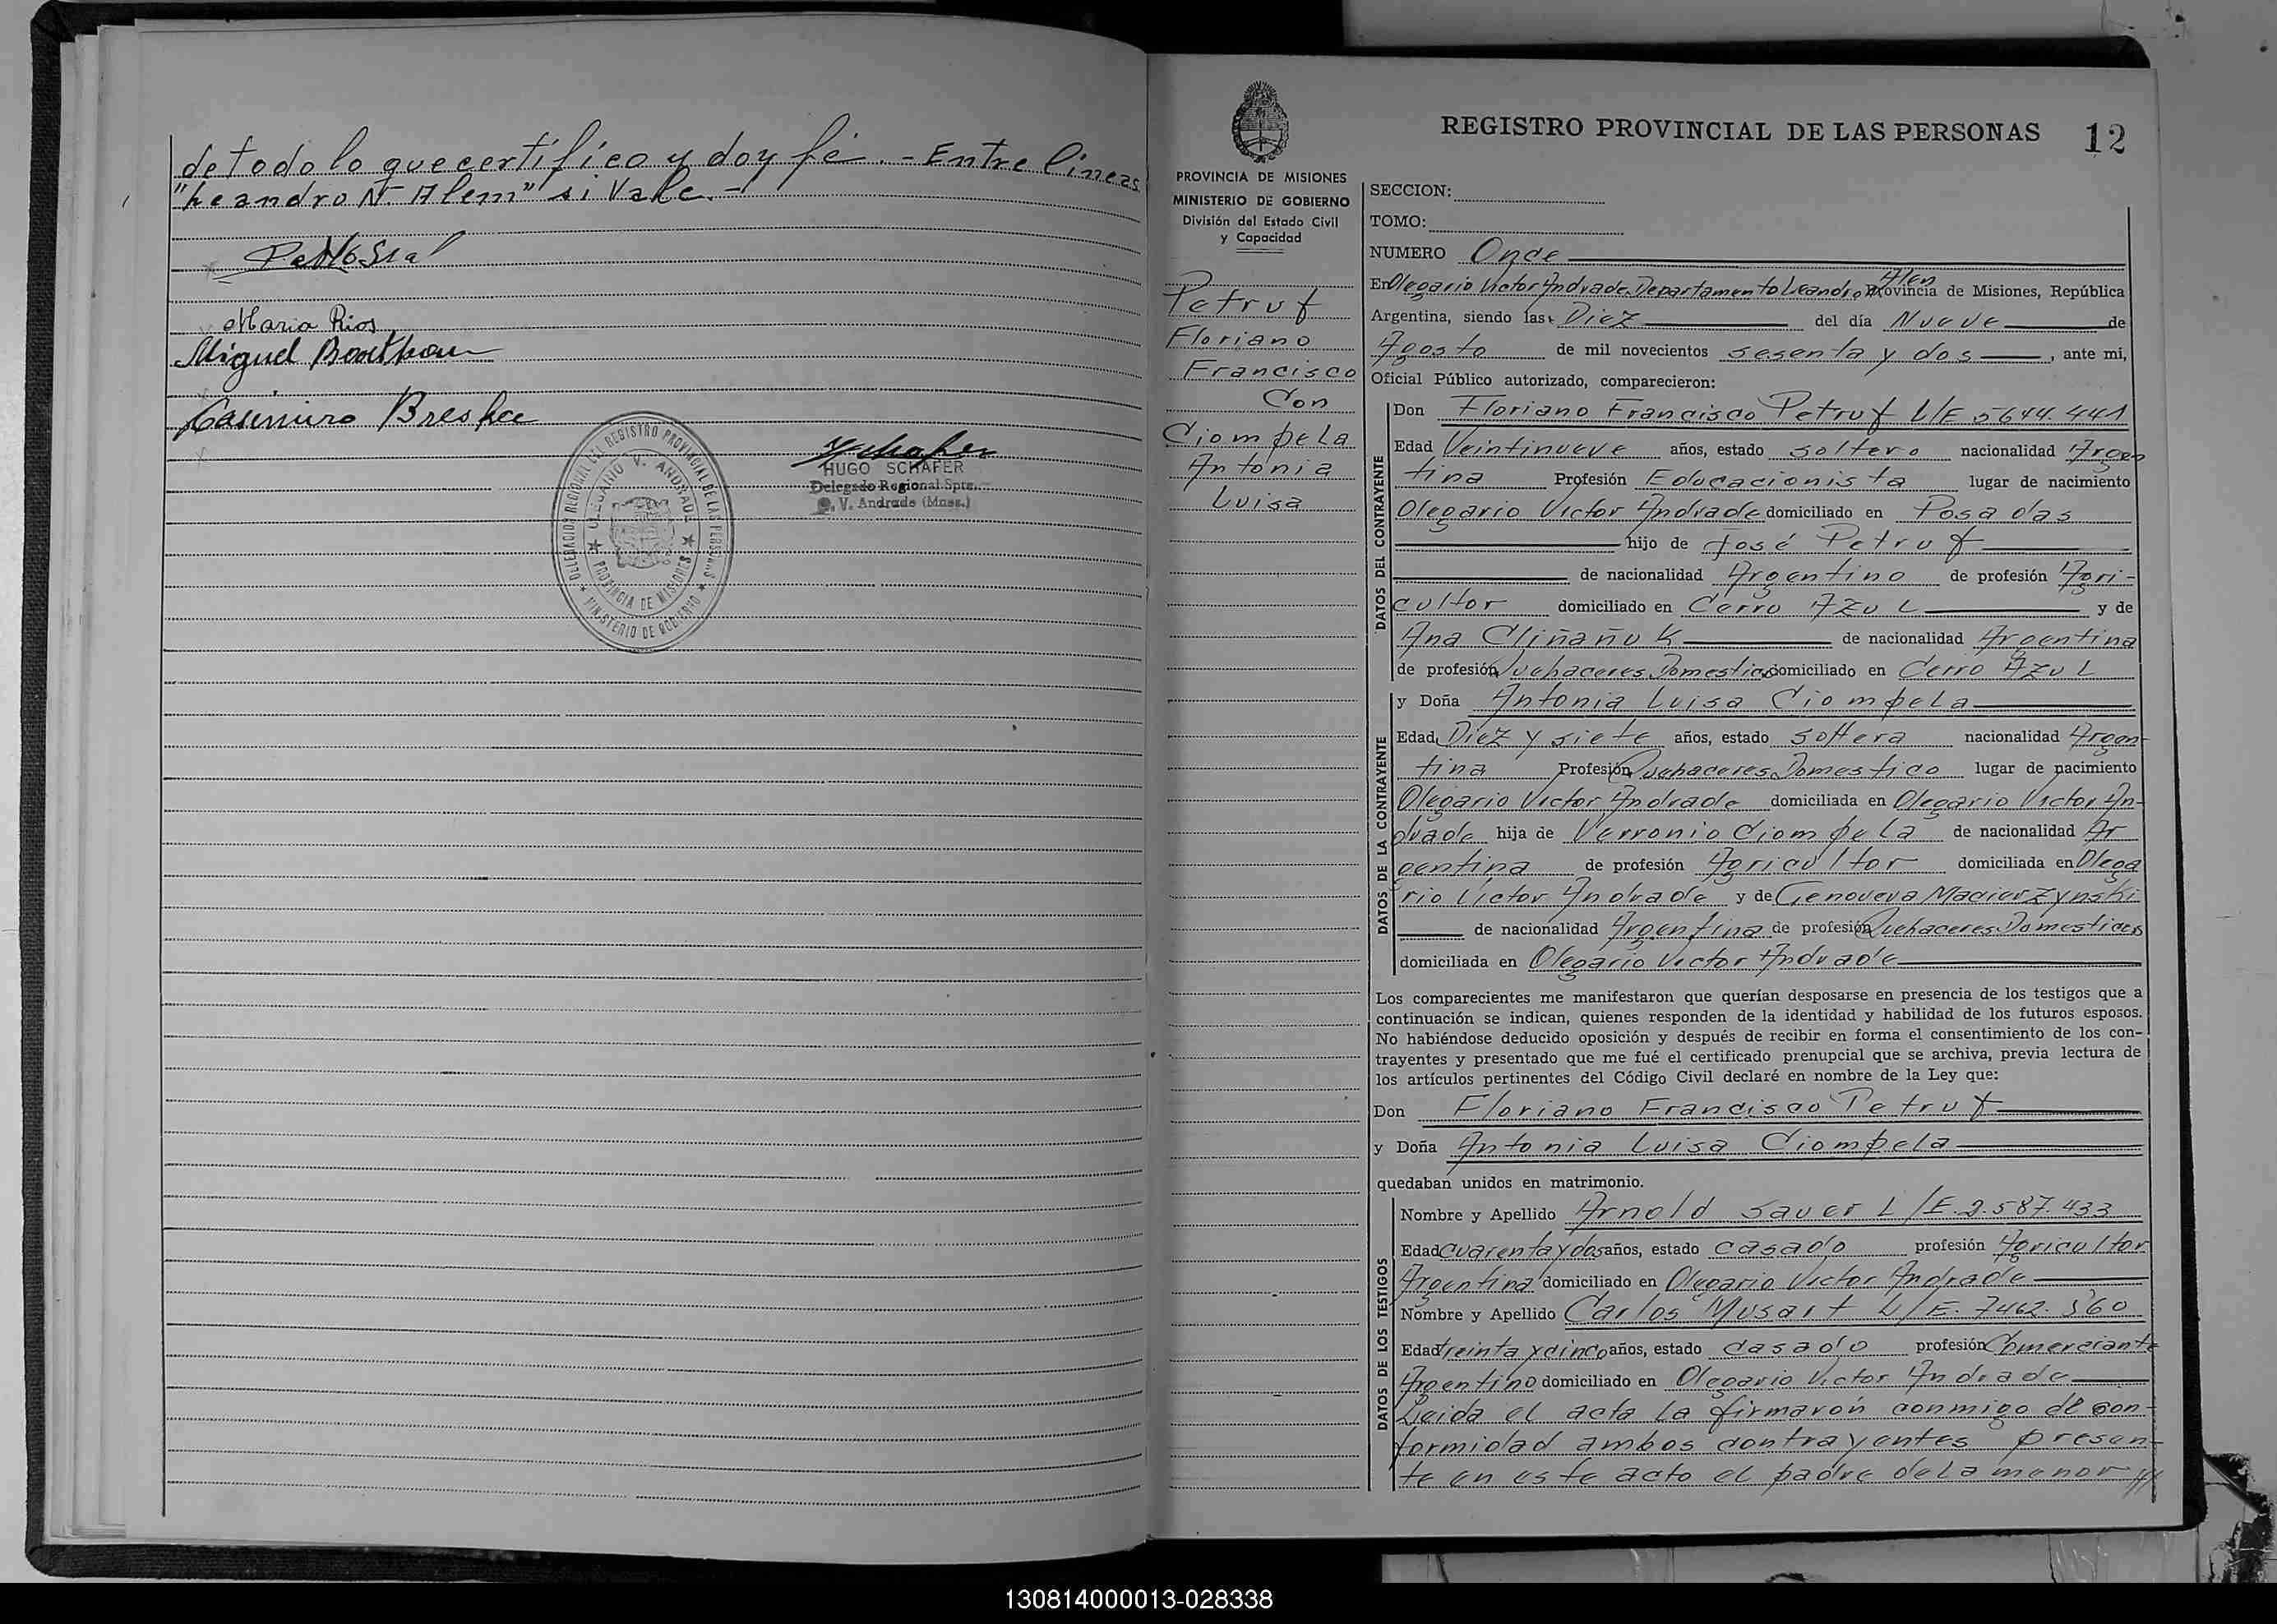 de todo lo que certifico y doy fé.- Entre lineas
"Leandro N. Alem" si Vale.-
Maria Rios
Miguel
Casimiro Breska
HUGO SCHAFER
Delegado Regional Spte.
O. V. Andrade (Mnes.)
DELEGACION REGIONAL DEL REGISTRO PROVINCIAL DE LAS PERSONAS
OLEGARIO V. ANDRADE
PROVINCIA DE MISIONES
MINISTERIO DE GOBIERNO
REGISTRO PROVINCIAL DE LAS PERSONAS 12
PROVINCIA DE MISIONES
MINISTERIO DE GOBIERNO
División del Estado Civil
y Capacidad
Petruf
Floriano
Francisco
Con
Ciompela
Antonia
Luisa
SECCION:
TOMO:
NUMERO Once
En Olegario Victor Andrade Departamento Leandro N. Alen Provincia de Misiones, República
Argentina, siendo las Diez del día Nueve de
Agosto de mil novecientos sesenta y dos, ante mi,
Oficial Público autorizado, comparecieron:
DATOS DEL CONTRAYENTE
Don Floriano Francisco Petruf L/E 5644.441
Edad Veintinueve años, estado soltero nacionalidad Argen
tina Profesión Educacionista lugar de nacimiento
Olegario Victor Andrade domiciliado en Posadas
hijo de José Petruf
de nacionalidad Argentino de profesión Agri-
cultor domiciliado en Cerro Azul y de
Ana Cliñañuk de nacionalidad Argentina
de profesión Quehaceres Domestico domiciliado en Cerro Azul
y Doña Antonia Luisa Ciompela
DATOS DE LA CONTRAYENTE
Edad Diez y siete años, estado soltera nacionalidad Argen-
tina Profesión Quehaceres Domestico lugar de nacimiento
Olegario Victor Andrade domiciliada en Olegario Victor An-
drade hija de Verronio Ciompela de nacionalidad Ar
gentina de profesión Agricultor domiciliada en Olega
rio Victor Andrade y de Genoveva Macierzynski
de nacionalidad Argentina de profesión Quehaceres Domesticos
domiciliada en Olegario Victor Andrade
Los comparecientes me manifestaron que querían desposarse en presencia de los testigos que a
continuación se indican, quienes responden de la identidad y habilidad de los futuros esposos.
No habiéndose deducido oposición y después de recibir en forma el consentimiento de los con-
trayentes y presentado que me fué el certificado prenupcial que se archiva, previa lectura de
los artículos pertinentes del Código Civil declaré en nombre de la Ley que:
Don Floriano Francisco Petruf
y Doña Antonia Luisa Ciompela
quedaban unidos en matrimonio.
DATOS DE LOS TESTIGOS
Nombre y Apellido Arnold Sauer L/E.2.587.433
Edad cuarenta y dos años, estado casado profesión Agricultor
Argentina domiciliado en Olegario Victor Andrade
Nombre y Apellido Carlos Musart L/E. 7462.560
Edad treinta y cinco años, estado casado profesión Comerciante
Argentino domiciliado en Olegario Victor Andrade
Leida el acta la firmarón conmigo de con-
formidad ambos contrayentes presen-
te en este acto el padre de la menor //
130814000013-028338